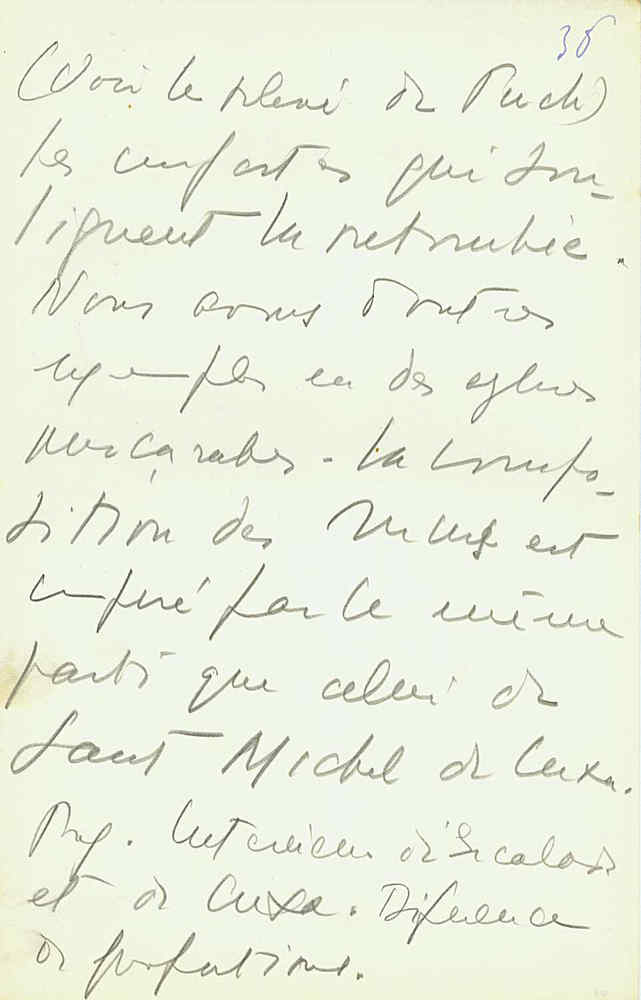 36
(Voir le relevé de Puch)
les confortes qui sou-
lignent la retombée.
Nous avons d'autres
exemples en des eglises
mosçarabes - la compo-
sition des murs est
inspiré par le même
parti que celui de
Saint Michel de Cuxa.
Proj. Interieur d'Escalada
et de Cuxa. Diference
de proportions.